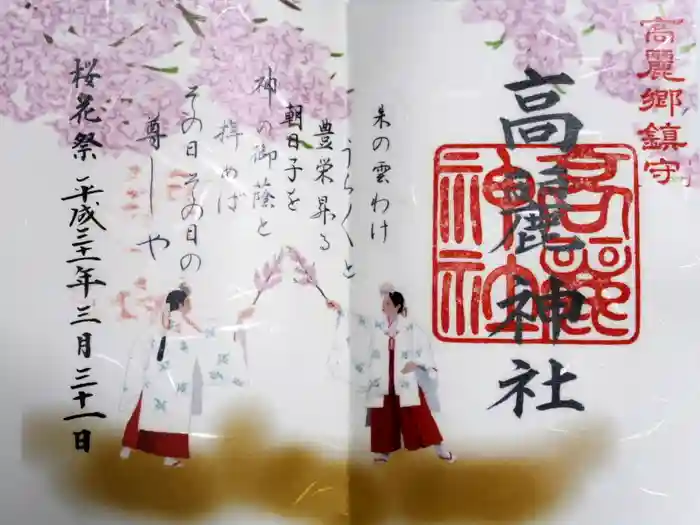 高麗郷鎮守
高麗神社
高麗神社
朱の雲わけ
うらうらと
豊栄昇る
朝日子を
神の御蔭と
拝めば
その日その日の
尊しや
桜花祭 平成三十一年三月三十一日